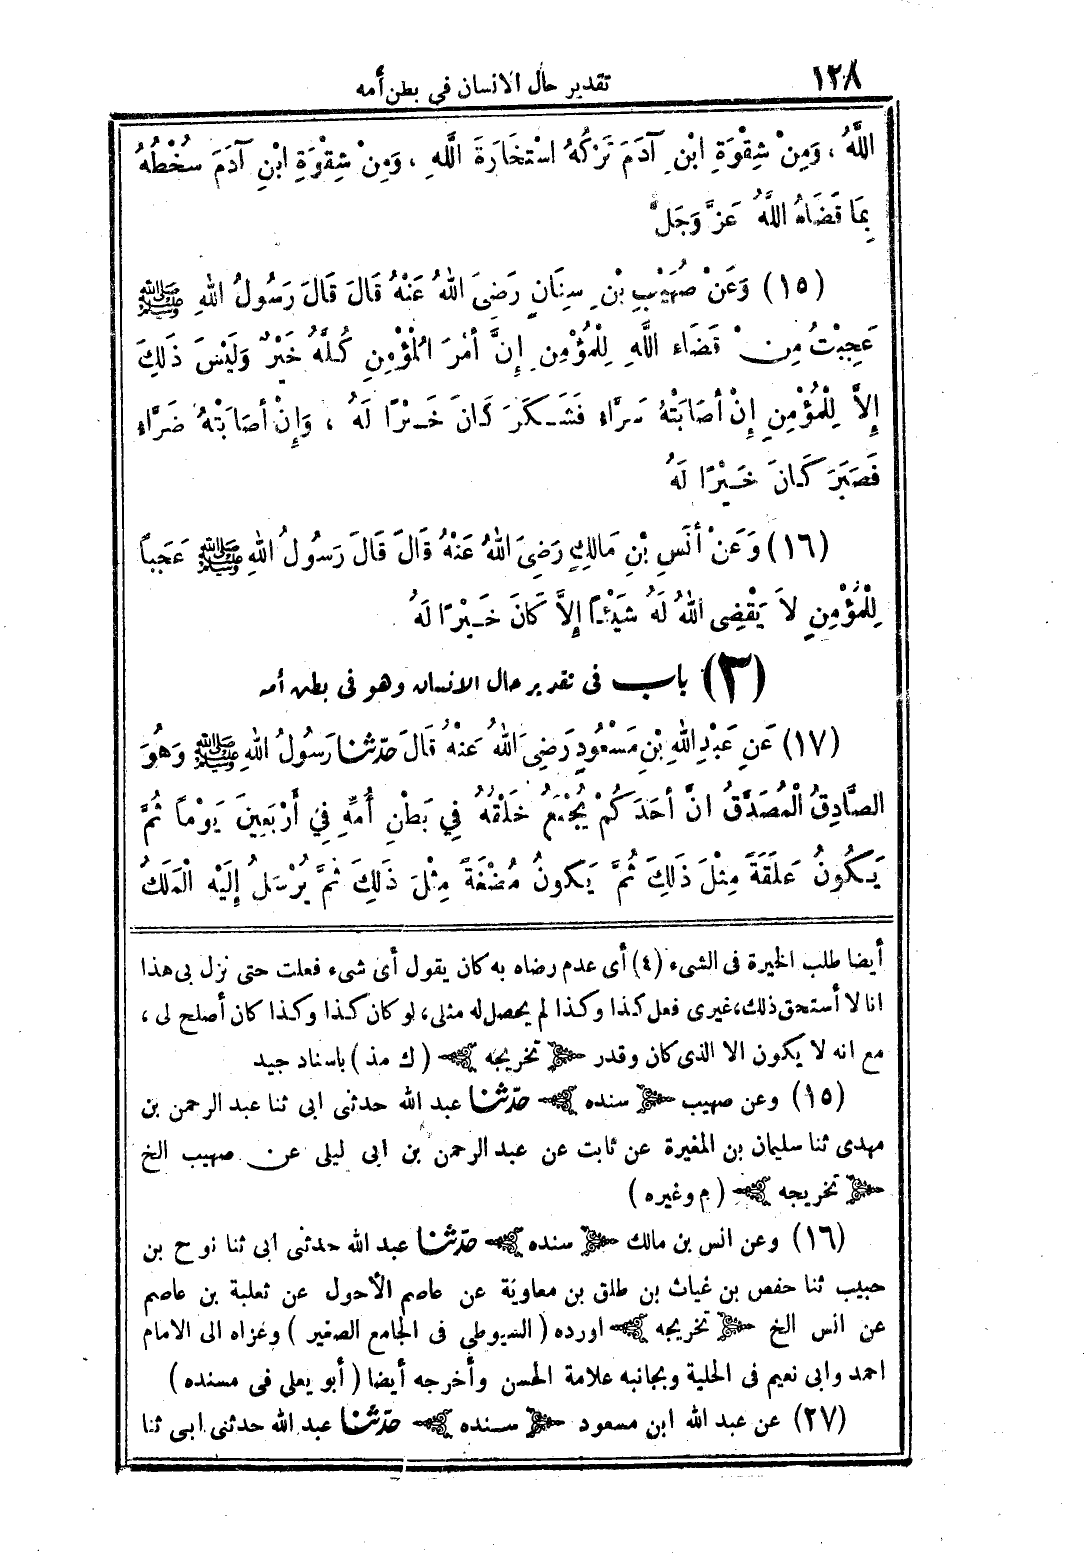 ١٢٨
تقدير حال الانسان في بطن أمه
اللَّهُ ، وَمِنْ شِقْوَةِ ابْنِ آدَمَ تَرْكُهُ اسْتِخَارَةَ اللَّهِ ، وَمِنْ شِقْوَةِ ابْنِ آدَمَ سُخْطُهُ
بِمَا قَضَاهُ اللَّهُ عَزَّ وَجَلَّ
(١٥) وَعَنْ صُهَيْبِ بْنِ سِنَانٍ رَضِيَ اللهُ عَنْهُ قَالَ قَالَ رَسُولُ اللهِ ﷺ
عَجِبْتُ مِنْ قَضَاءِ اللَّهِ لِلْمُؤْمِنِ إِنَّ أَمْرَ الْمُؤْمِنِ كُلَّهُ خَيْرٌ وَلَيْسَ ذَلِكَ
إِلاَّ لِلْمُؤْمِنِ إِنْ أَصَابَتْهُ سَرَّاءُ فَشَكَرَ كَانَ خَيْرًا لَهُ ، وَإِنْ أَصَابَتْهُ ضَرَّاءُ
فَصَبَرَ كَانَ خَيْرًا لَهُ
(١٦) وَعَنْ أَنَسِ بْنِ مَالِكٍ رَضِيَ اللهُ عَنْهُ قَالَ قَالَ رَسُولُ اللهِ ﷺ عَجَباً
لِلْمُؤْمِنِ لاَ يَقْضِي اللهُ لَهُ شَيْئًا إِلاَّ كَانَ خَيْرًا لَهُ
(٣) باب في تقدير حال الانسان وهو في بطن أمه
(١٧) عَنْ عَبْدِ اللهِ بْنِ مَسْعُودٍ رَضِيَ اللهُ عَنْهُ قَالَ حَدَّثَنَا رَسُولُ اللهِ ﷺ وَهُوَ
الصَّادِقُ الْمُصَدَّقُ انَّ أَحَدَكُمْ يُجْمَعُ خَلْقُهُ فِي بَطْنِ أُمِّهِ فِي أَرْبَعِينَ يَوْماً ثُمَّ
يَكُونُ عَلَقَةً مِثْلَ ذَلِكَ ثُمَّ يَكُونُ مُضْغَةً مِثْلَ ذَلِكَ ثُمَّ يُرْسَلُ إِلَيْهِ الْمَلَكُ
أيضا طلب الخيرة فى الشىء (٤) أى عدم رضاه به كان يقول أى شىء فعلت حتى نزل بى هذا
انا لا أستحق ذلك، غيرى فعل كذا وكذا لم يحصل له مثلى، لو كان كذا وكذا كان أصلح لى ،
مع انه لا يكون الا الذى كان وقدر ﴿ تخريجه ﴾ ( ك مذ ) باسناد جيد
(١٥) وعن صهيب ﴿ سنده ﴾ حدّثنا عبد الله حدثنى ابى ثنا عبد الرحمن بن
مهدى ثنا سليمان بن المغيرة عن ثابت عن عبد الرحمن بن ابى ليلى عن صهيب الخ
﴿ تخريجه ﴾ ( م وغيره )
(١٦) وعن انس بن مالك ﴿ سنده ﴾ حدّثنا عبد الله حدثنى ابى ثنا نوح بن
حبيب ثنا حفص بن غياث بن طلق بن معاوية عن عاصم الأحول عن ثعلبة بن عاصم
عن انس الخ ﴿ تخريجه ﴾ اورده ( السيوطى فى الجامع الصغير ) وغزاه الى الامام
احمد وابى نعيم فى الحلية وبجانبه علامة الحسن وأخرجه أيضا ( أبو يعلى فى مسنده )
(٢٧) عن عبد الله ابن مسعود ﴿ سنده ﴾ حدّثنا عبد الله حدثنى ابى ثنا